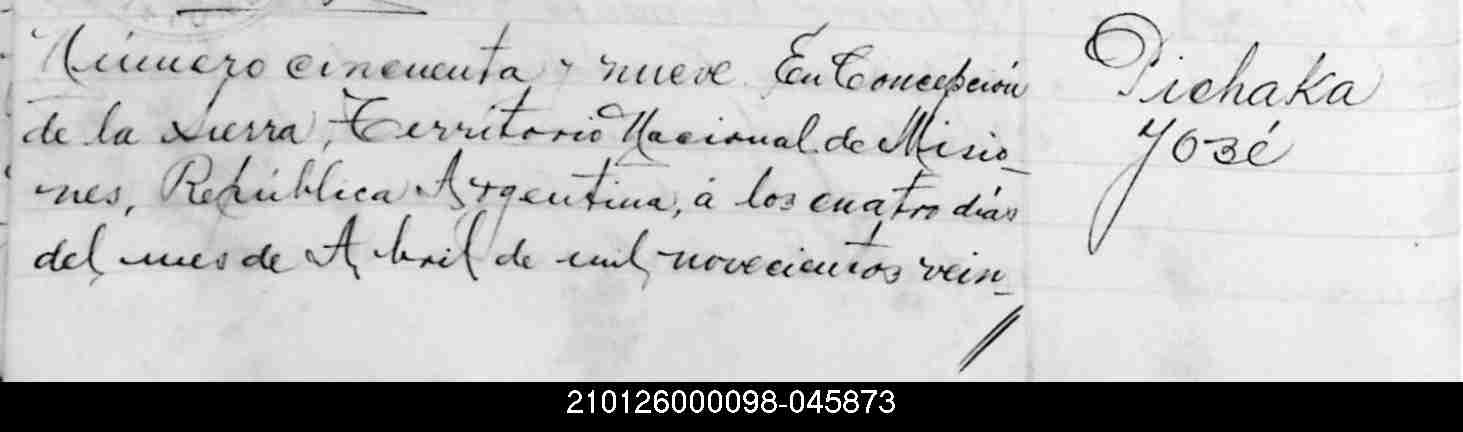 Número cincuenta y nueve. En Concepción
de la Sierra, Territorio Nacional de Misio_
nes, República Argentina, á los cuatro días
del mes de Abril de mil novecientos vein_
Pichaka
José
210126000098-045873